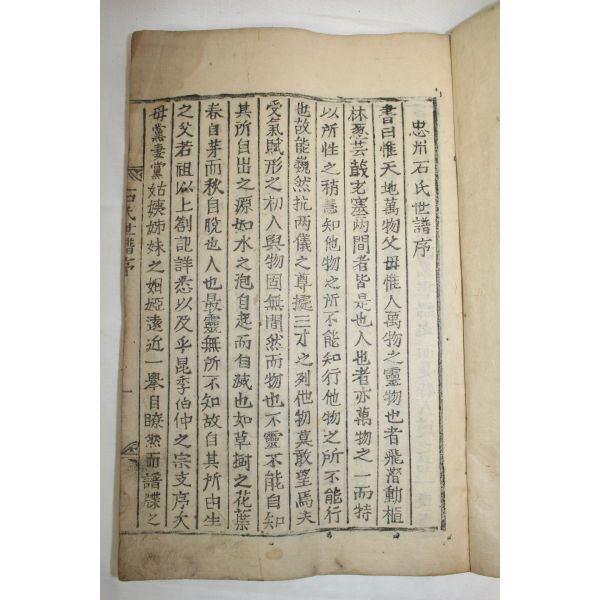 忠州石氏世譜序
書曰惟天地萬物父母惟人萬物之靈物也者飛潛動植
林葱芸戢充塞兩間者皆是也人也者亦萬物之一而特
以所性之稍慧知他物之所不能知行他物之所不能行
也故能巍然抗兩儀之尊擢三才之列他物莫敢望焉夫
受氣賦形之初人與物固無間然而物也不靈不能自知
其所自出之源如水之泡自起而自滅也如草樹之花葉
春自芽而秋自脫也人也最靈無所不知故自其所由生
之父若祖以上劄記詳悉以及乎昆季伯仲之宗支序次
母黨妻黨姑姨姊妹之姻婭遠近一舉目瞭然而譜牒之
石氏世譜序